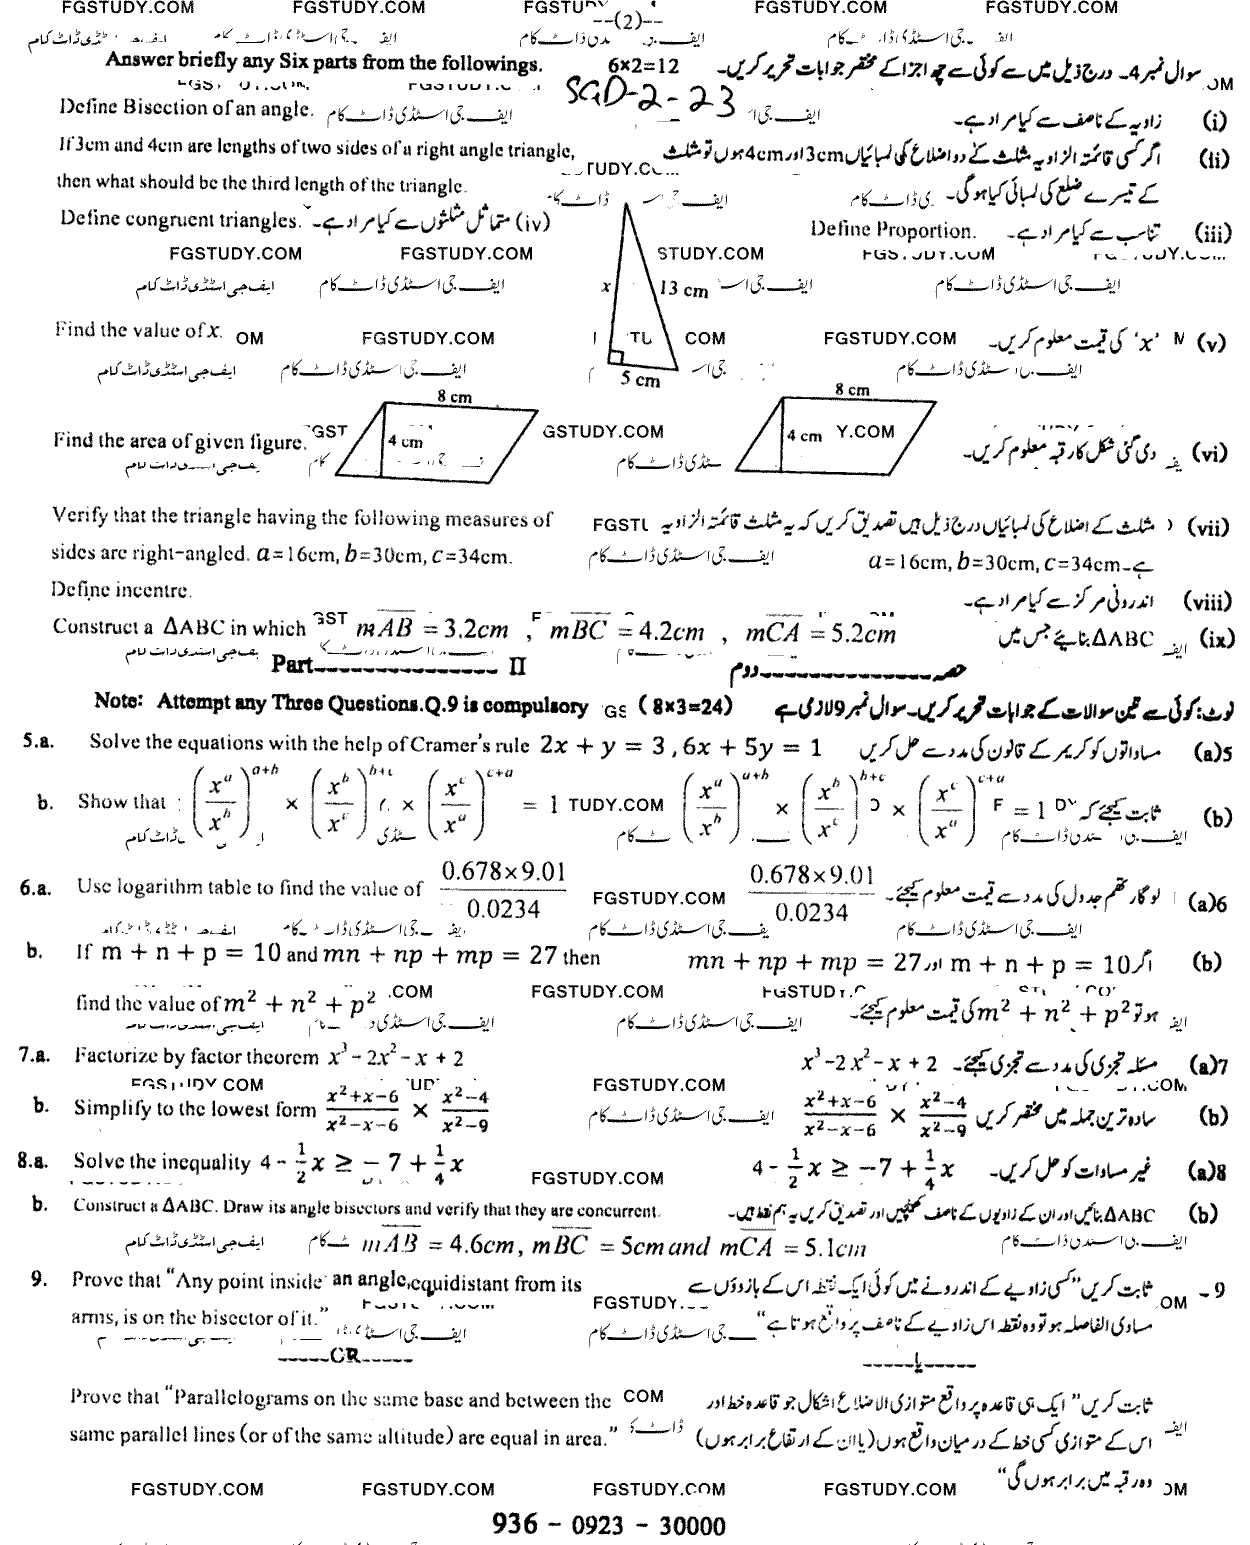 FGSTUDY.COM FGSTUDY.COM FGSTUDY.COM FGSTUDY.COM
--(2)--
Answer briefly any Six parts from the followings. 6×2=12 سوال نمبر 4۔ درج ذیل میں سے کوئی سے چھ اجزا کے مختصر جوابات تحریر کریں۔
SGD-2-23
Define Bisection of an angle. زاویہ کے ناصف سے کیا مراد ہے۔ (i)
If 3cm and 4cm are lengths of two sides of a right angle triangle, اگر کسی قائمۃ الزاویہ مثلث کے دو اضلاع کی لمبائیاں 3cm اور 4cm ہوں تو مثلث (ii)
then what should be the third length of the triangle. کے تیسرے ضلع کی لمبائی کیا ہوگی۔
Define congruent triangles. متماثل مثلثوں سے کیا مراد ہے۔ (iv) Define Proportion. تناسب سے کیا مراد ہے۔ (iii)
FGSTUDY.COM FGSTUDY.COM STUDY.COM
x 13 cm
Find the value of x. FGSTUDY.COM FGSTUDY.COM 'x' کی قیمت معلوم کریں۔ (v)
5 cm
8 cm 8 cm
Find the area of given figure. 4 cm GSTUDY.COM 4 cm Y.COM دی گئی شکل کا رقبہ معلوم کریں۔ (vi)
Verify that the triangle having the following measures of مثلث کے اضلاع کی لمبائیاں درج ذیل ہیں تصدیق کریں کہ یہ مثلث قائمۃ الزاویہ (vii)
sides are right-angled. a=16cm, b=30cm, c=34cm. a=16cm, b=30cm, c=34cm ہے۔
Define incentre. اندرونی مرکز سے کیا مراد ہے۔ (viii)
Construct a ΔABC in which mAB = 3.2cm , mBC = 4.2cm , mCA = 5.2cm ΔABC بنائیے جس میں (ix)
Part---------------- II حصہ ---------------- دوم
Note: Attempt any Three Questions. Q.9 is compulsory (8×3=24) نوٹ: کوئی سے تین سوالات کے جوابات تحریر کریں۔ سوال نمبر 9 لازمی ہے
5.a. Solve the equations with the help of Cramer's rule 2x + y = 3 , 6x + 5y = 1 مساواتوں کو کریمر کے قانون کی مدد سے حل کریں (a)5
b. Show that : (x^a/x^b)^(a+b) × (x^b/x^c)^(b+c) × (x^c/x^a)^(c+a) = 1 (x^a/x^b)^(a+b) × (x^b/x^c)^(b+c) × (x^c/x^a)^(c+a) = 1 ثابت کیجئے کہ (b)
6.a. Use logarithm table to find the value of (0.678×9.01)/0.0234 FGSTUDY.COM (0.678×9.01)/0.0234 لوگارتھم جدول کی مدد سے قیمت معلوم کیجئے۔ (a)6
b. If m + n + p = 10 and mn + np + mp = 27 then mn + np + mp = 27 اور m + n + p = 10 اگر (b)
find the value of m² + n² + p² .COM FGSTUDY.COM ہو تو m² + n² + p² کی قیمت معلوم کیجئے۔
7.a. Factorize by factor theorem x³ - 2x² - x + 2 x³ - 2x² - x + 2 مسئلہ تجزی کی مدد سے تجزی کیجئے۔ (a)7
FGSTUDY.COM FGSTUDY.COM
b. Simplify to the lowest form (x²+x−6)/(x²−x−6) × (x²−4)/(x²−9) (x²+x−6)/(x²−x−6) × (x²−4)/(x²−9) سادہ ترین جملہ میں مختصر کریں (b)
8.a. Solve the inequality 4 - 1/2 x ≥ −7 + 1/4 x FGSTUDY.COM 4 - 1/2 x ≥ −7 + 1/4 x غیر مساوات کو حل کریں۔ (a)8
b. Construct a ΔABC. Draw its angle bisectors and verify that they are concurrent. ΔABC بنائیں اور ان کے زاویوں کے ناصف کھینچیں اور تصدیق کریں یہ ہم نقطہ ہیں۔ (b)
mAB = 4.6cm, mBC = 5cm and mCA = 5.1cm
9. Prove that "Any point inside an angle, equidistant from its ثابت کریں "کسی زاویے کے اندرونے میں کوئی ایک نقطہ اس کے بازوؤں سے 9 -
arms, is on the bisector of it." مساوی الفاصلہ ہو تو وہ نقطہ اس زاویے کے ناصف پر واقع ہوتا ہے"
-----OR----- -----یا-----
Prove that "Parallelograms on the same base and between the ثابت کریں" ایک ہی قاعدہ پر واقع متوازی الاضلاع اشکال جو قاعدہ خط اور
same parallel lines (or of the same altitude) are equal in area." اس کے متوازی کسی خط کے درمیان واقع ہوں (یا ان کے ارتفاع برابر ہوں)
وہ رقبہ میں برابر ہوں گی"
FGSTUDY.COM FGSTUDY.COM FGSTUDY.COM FGSTUDY.COM
936 - 0923 - 30000